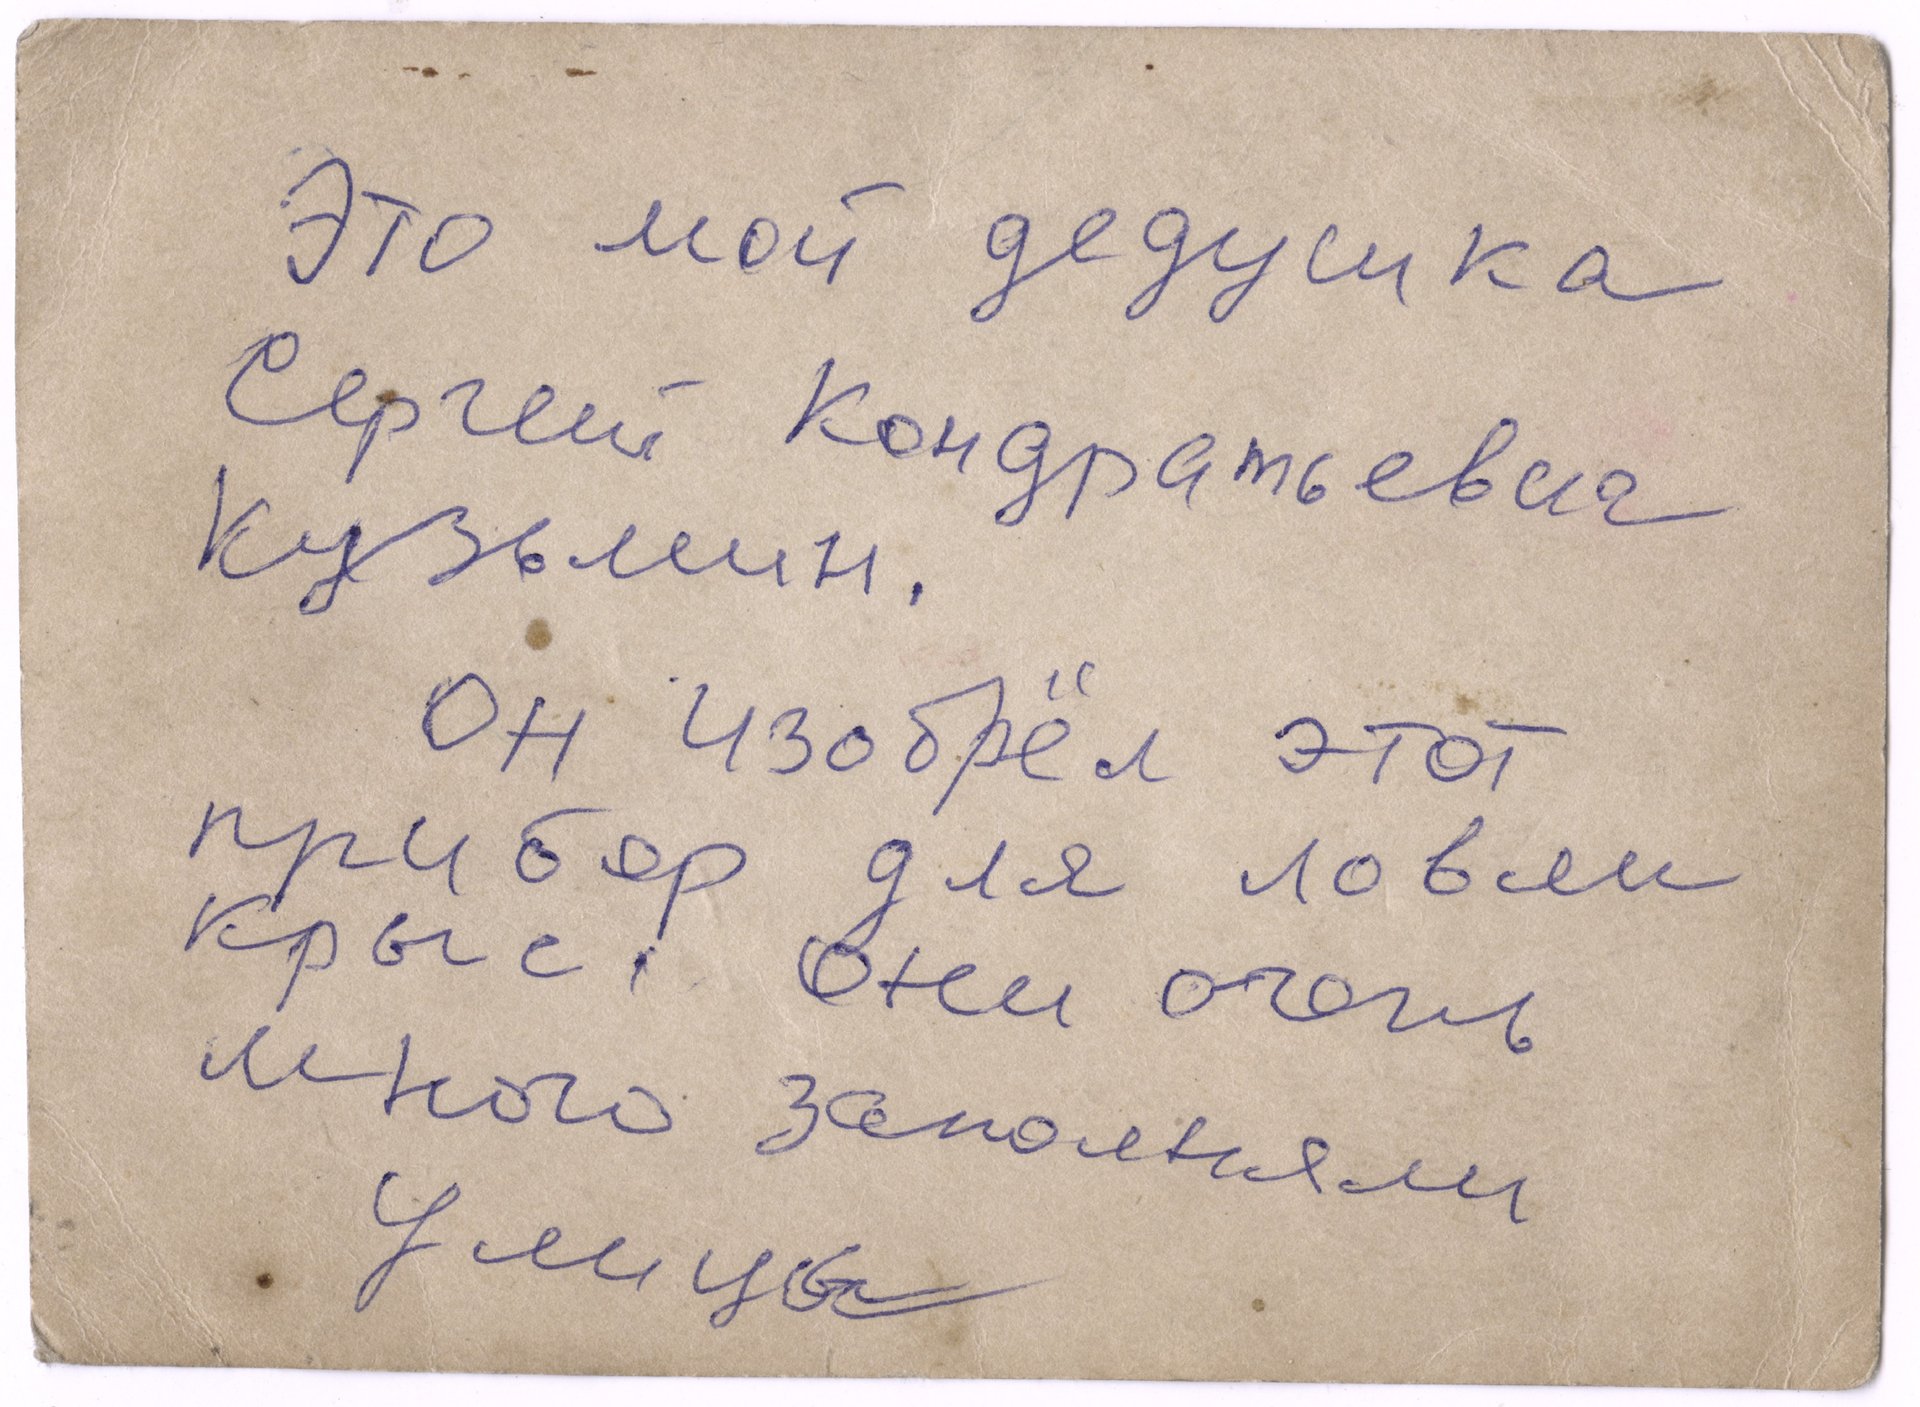 Это мой дедушка
Сергей Кондратьевич
Кузьмин.
Он изобрёл этот
прибор для ловли
крыс. Они очень
много заполняли
Улицы